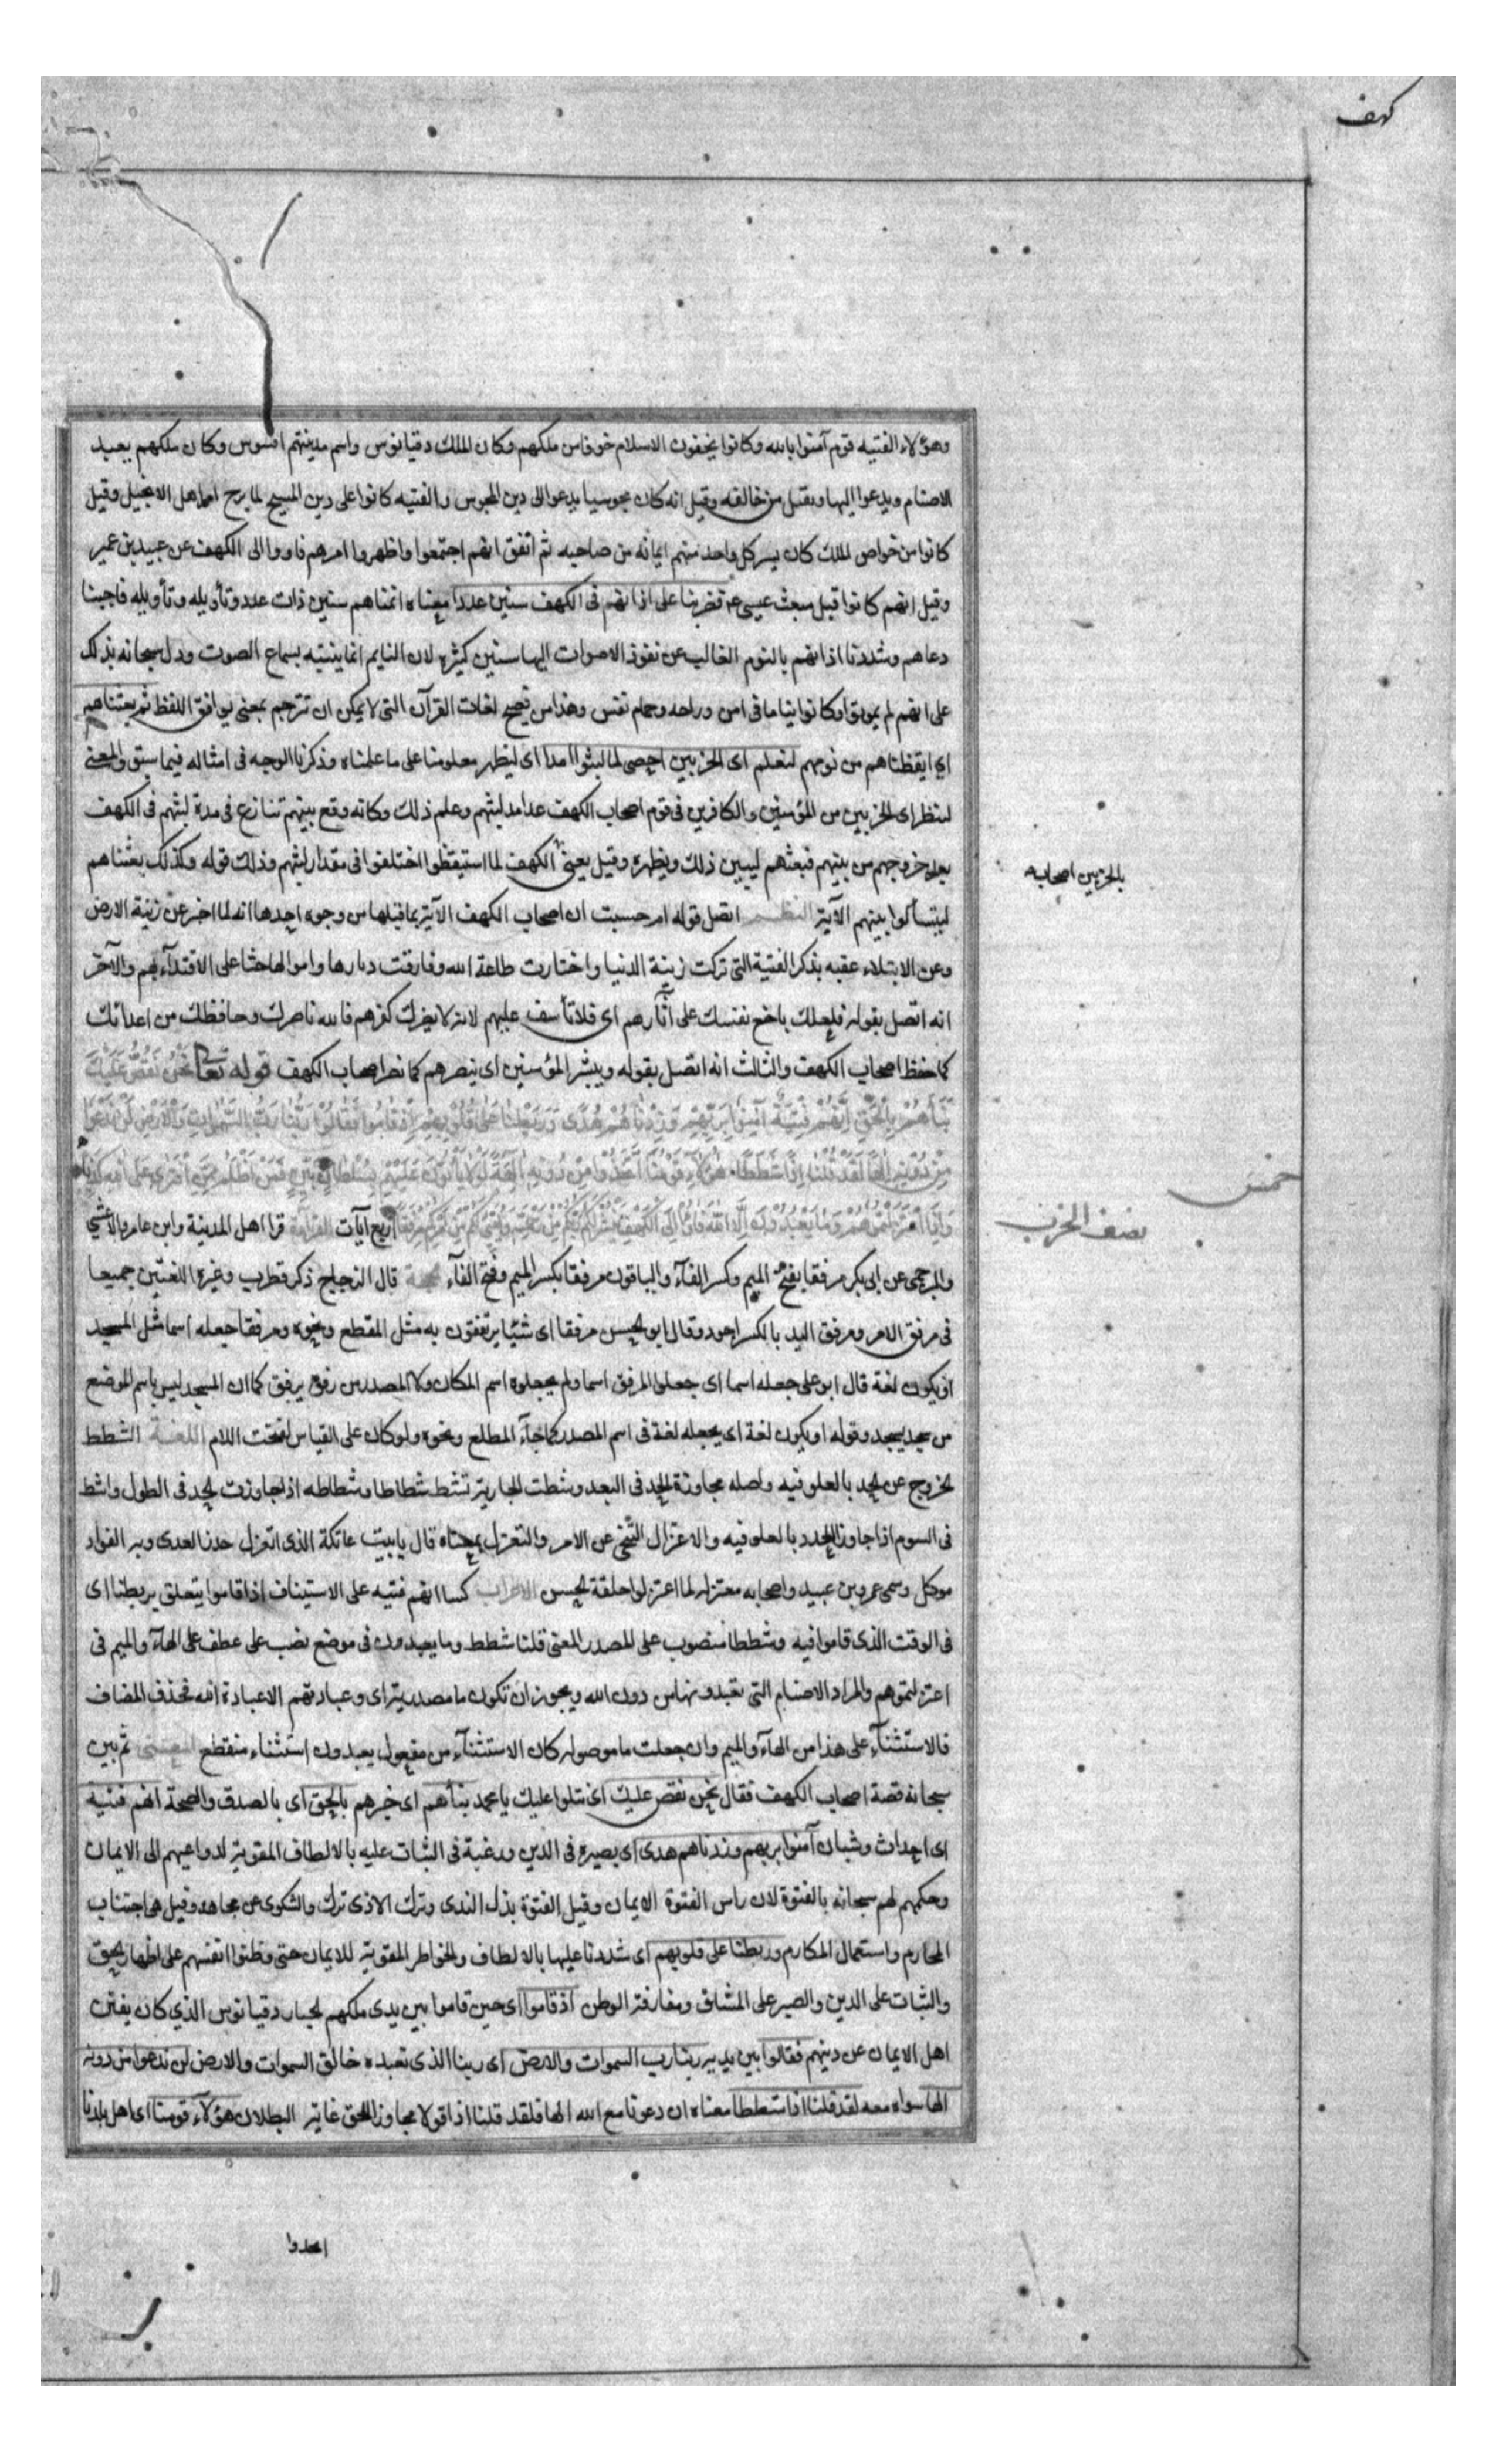 كهف
وهؤلاء الفتيه قوم آمنوا بالله وكانوا يخفون الاسلام خوفا من ملكهم وكان الملك دقيانوس واسم مدينتهم افسوس وكان ملكهم يعبد
الاصنام ويدعوا اليها ويقتل من خالفه وقيل انه كان مجوسيا يدعوا الى دين المجوس والفتيه كانوا على دين المسيح لما برح اهل الانجيل وقيل
كانوا من خواص الملك كان يسر كل واحد منهم ايمانه من صاحبه ثم اتفق انهم اجتمعوا واظهروا امرهم فاووا الى الكهف عن عبيد بن عمير
وقيل انهم كانوا قبل مبعث عيسى ع فضربنا على اذانهم فى الكهف سنين عددا معناه انمناهم سنين ذات عدد وتأويله وتأويله فاجبنا
دعاهم وشددنا اذانهم بالنوم الغالب عن نفوذ الاصوات اليها سنين كثيره لان النايم انما ينتبه بسماع الصوت ودل سبحانه بذلك
على انهم لم يموتوا وكانوا نياما فى امن وراحه وجمام نفس وهذا من فصيح لغات القرآن التى لا يمكن ان تترجم بمعنى يوافق اللفظ ثم بعثناهم
اى ايقظناهم من نومهم لنعلم اى الحزبين احصى لما لبثوا امدا اى ليظهر معلومنا على ما علمناه وذكرنا الوجه فى امثاله فيما سبق والمعنى
لننظر اى الحزبين من المؤمنين والكافرين فى قوم اصحاب الكهف عد امد لبثهم وعلم ذلك وكانه وقع بينهم تنازع فى مدة لبثهم فى الكهف
بعد خروجهم من بينهم فبعثهم ليبين ذلك ويظهره وقيل يعنى الكهف لما استيقظوا اختلفوا فى مقدار لبثهم وذلك قوله وكذلك بعثناهم
بالحزبين اصحابه
ليتسألوا بينهم الآية النظم اتصل قوله ام حسبت ان اصحاب الكهف الآية بما قبلها من وجوه احدها انه لما اخبر عن زينة الارض
وعن الابتلاء عقبه بذكر الفتية التى تركت زينة الدنيا واختارت طاعة الله وفارقت ديارها واموالها حثا على الاقتداء بهم والآخر
انه اتصل بقوله فلعلك باخع نفسك على آثارهم اى فلا تأسف عليهم لانه لا يضرك كفرهم فالله ناصرك وحافظك من اعدائك
كما حفظ اصحاب الكهف والثالث انه اتصل بقوله ويبشر المؤمنين اى ينصرهم كما نصر اصحاب الكهف قوله تعالى نَحْنُ نَقُصُّ عَلَيْكَ
نَبَأَهُمْ بِالْحَقِّ إِنَّهُمْ فِتْيَةٌ آمَنُوا بِرَبِّهِمْ وَزِدْنَاهُمْ هُدًى وَرَبَطْنَا عَلَى قُلُوبِهِمْ إِذْ قَامُوا فَقَالُوا رَبُّنَا رَبُّ السَّمَوَاتِ وَالْأَرْضِ لَنْ نَدْعُوَا
مِنْ دُونِهِ إِلَهًا لَقَدْ قُلْنَا إِذًا شَطَطًا هَؤُلَاءِ قَوْمُنَا اتَّخَذُوا مِنْ دُونِهِ آلِهَةً لَوْلَا يَأْتُونَ عَلَيْهِمْ بِسُلْطَانٍ بَيِّنٍ فَمَنْ أَظْلَمُ مِمَّنِ افْتَرَى عَلَى اللهِ كَذِبًا
خمس
وَإِذِ اعْتَزَلْتُمُوهُمْ وَمَا يَعْبُدُونَ إِلَّا اللهَ فَأْوُوا إِلَى الْكَهْفِ يَنْشُرْ لَكُمْ رَبُّكُمْ مِنْ رَحْمَتِهِ وَيُهَيِّئْ لَكُمْ مِنْ أَمْرِكُمْ مِرْفَقًا اربع آيات القراءة قرا اهل المدينة وابن عامر والاعشى
نصف الحزب
والبرجمى عن ابى بكر مرفقا بفتح الميم وكسر الفآء والباقون مرفقا بكسر الميم وفتح الفآء الحجة قال الزجاج ذكر قطرب وغيره اللغتين جميعا
فى مرفق الامر ومرفق اليد بالكسر اجود وقال ابو الحسن مرفقا اى شيئا يرتفقون به مثل المقطع ونحوه ومرفقا جعله اسما مثل المسجد
او يكون لغة قال ابو على جعله اسما اى جعلوا المرفق اسما ولم يجعلوه اسم المكان ولا المصدر من رفق يرفق كما ان المسجد ليس باسم الموضع
من سجد يسجد وقوله او يكون لغة اى يجعله لغة فى اسم المصدر كما جآء المطلع ونحوه ولو كان على القياس لفتحت اللام اللغة الشطط
الخروج عن الحد بالغلو فيه واصله مجاوزة الحد فى البعد وشطت الجارية تشط شطاطا وشطاطه اذا جاوزت الحد فى الطول واشط
فى السوم اذا جاوز الحد بالغلو فيه والاعتزال التنحى عن الامر والتعزل بمعناه قال يا بيت عاتكة الذى اتعزل حذر العدى وبه الفواد
موكل وسمى عمرو بن عبيد واصحابه معتزله لما اعتزلوا حلقة الحسن الاعراب كسر انهم فتيه على الاستيناف اذ قاموا يتعلق بربطنا اى
فى الوقت الذى قاموا فيه وشططا منصوب على المصدر المعنى قلنا شطط وما يعبدون فى موضع نصب على عطف على الهآء والميم فى
اعتزلتموهم والمراد الاصنام التى تعبدونها من دون الله ويجوز ان تكون ما مصدرية اى وعبادتهم الا عبادة الله فحذف المضاف
فالاستثنآء على هذا من الهآء والميم وان جعلت ما موصوله كان الاستثنآء من مفعول يعبدون استثناء منقطع المعنى ثم بين
سبحانه قصة اصحاب الكهف فقال نحن نقص عليك اى نتلوا عليك يا محمد نبأهم اى خبرهم بالحق اى بالصدق والصحة انهم فتية
اى احداث وشبان آمنوا بربهم وزدناهم هدى اى بصيره فى الدين ورغبة فى الثبات عليه بالالطاف المقوية لدواعيهم الى الايمان
وحكمهم لهم سبحانه بالفتوة لان راس الفتوة الايمان وقيل الفتوة بذل الندى وترك الاذى وترك الشكوى عن مجاهد وقيل هى اجتناب
المحارم واستعمال المكارم وربطنا على قلوبهم اى شددنا عليها بالالطاف والخواطر المقوية للايمان حتى وطنوا انفسهم على اظهار الحق
والثبات على الدين والصبر على المشاق ومفارقة الوطن اذ قاموا اى حين قاموا بين يدى ملكهم الجبار دقيانوس الذي كان يفتن
اهل الايمان عن دينهم فقالوا بين يديه ربنا رب السموات والارض اى ربنا الذى نعبده خالق السموات والارض لن ندعوا من دونه
الها سواه معه لقد قلنا اذا شططا معناه ان دعونا مع الله الها فلقد قلنا اذا قولا مجاوزا للحق غاية البطلان هؤلآء قومنا اى اهل بلدنا